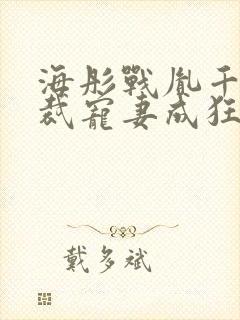 海彤戰胤千
裁寵妻成狂
戴多斌